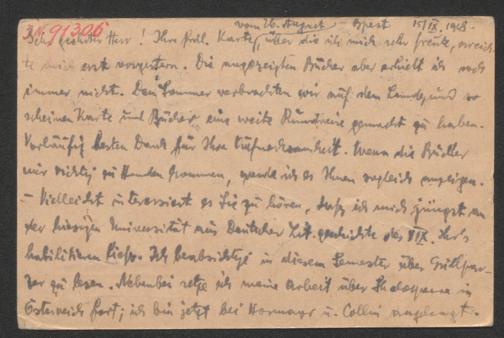 vom 26. August – Bpest 15/IX. 1928.
91306
Sehr geehrter Herr! Ihre Karte, über die ich mich sehr freute, erreich-
te mich erst vorgestern. Die angezeigten Bücher aber erhielt ich noch
immer nicht. Den Sommer verbrachten wir auf dem Lande, und so
scheinen Karte und Bücher eine weite Rundreise gemacht zu haben.
Vorläufig besten Dank für Ihre Aufmerksamkeit. Wenn die Bücher
mir richtig zu Handen kommen, werde ich es Ihnen sogleich anzeigen.
– Vielleicht interessiert es Sie zu hören, daß ich mich jüngst an
der hiesigen Universität aus Deutscher Lit.geschichte des XIX. Jhrh's
habilitieren ließ. Ich beabsichtige in diesem Semester über Grillpar-
zer zu lesen. Nebenbei setze ich meine Arbeit über Shakespeare in
Österreich fort; ich bin jetzt bei Hormayr u. Collin angelangt.